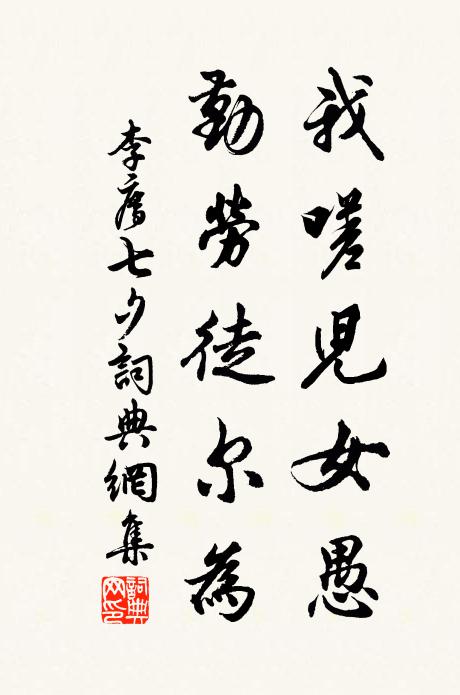 我嗟兒女愚
勤勞徒尔為
李廌七夕詞典網集
詞典網印